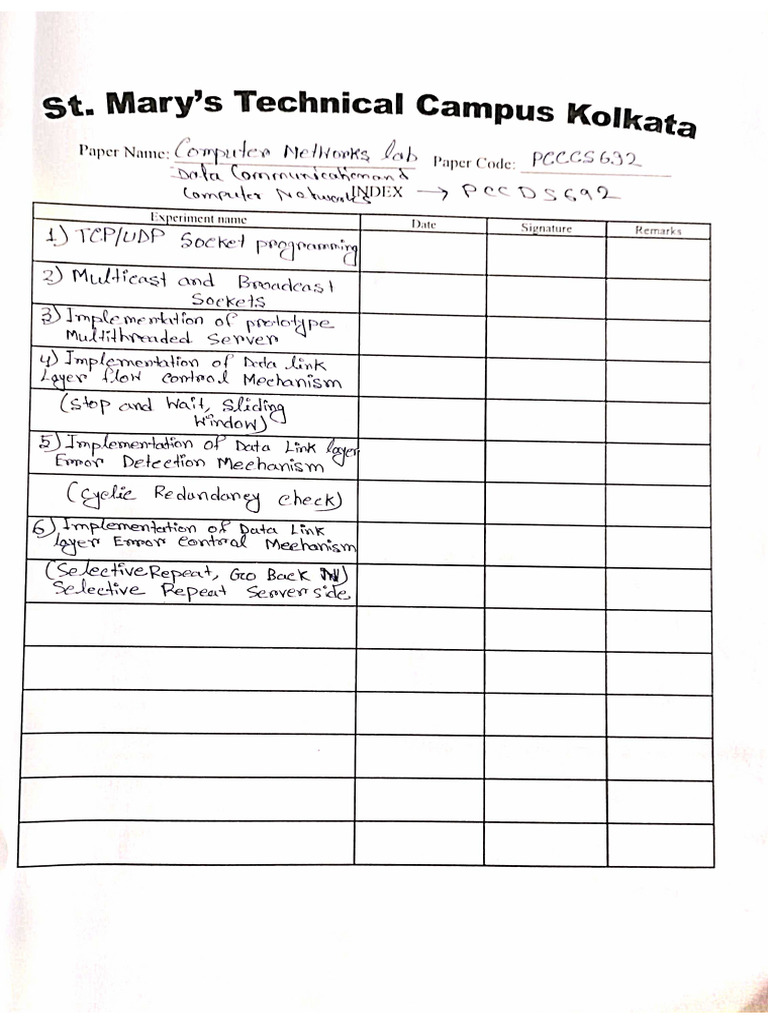 St. Mary's Technical Campus Kolkata
Paper Name: Computer Networks lab Paper Code: PCCCS692
Data Communication and
Computer Networks INDEX → PCCDS692
Experiment name Date Signature Remarks
1) TCP/UDP Socket programming
2) Multicast and Broadcast
Sockets
3) Implementation of prototype
Multithreaded Server
4) Implementation of Data link
Layer flow control Mechanism
(Stop and Wait, Sliding
Window)
5) Implementation of Data Link layer
Error Detection Mechanism
(Cyclic Redundancy check)
6) Implementation of Data Link
layer Error Control Mechanism
(Selective Repeat, Go Back N)
Selective Repeat Server side